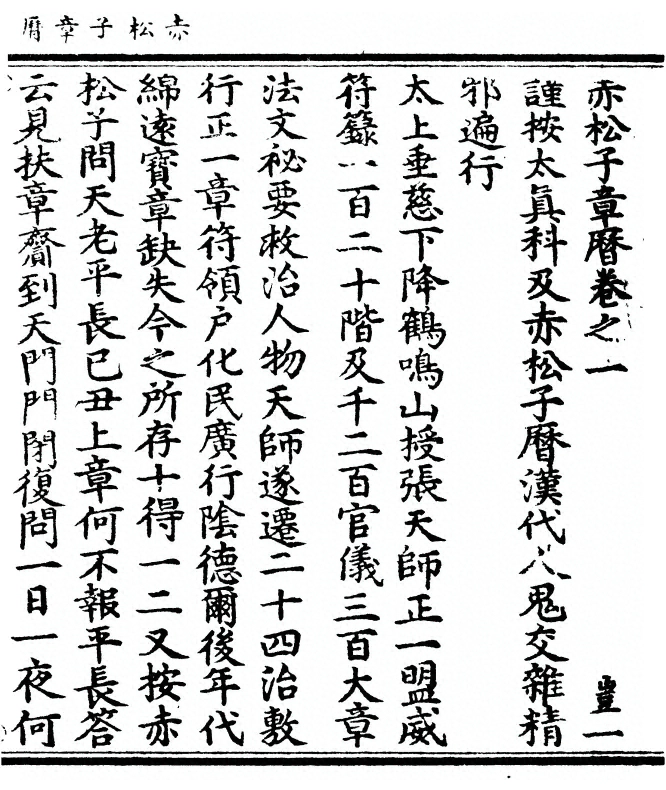 赤松子章曆
赤松子章曆卷之一　豈一
謹按太真科及赤松子曆漢代人鬼交雜精
邪遍行
太上垂慈下降鶴鳴山授張天師正一盟威
符籙一百二十階及千二百官儀三百大章
法文祕要救治人物天師遂遷二十四治敷
行正一章符領户化民廣行陰德爾後年代
綿遠寶章缺失今之所存十得一二又按赤
松子問天老平長已丑上章何不報平長答
云見扶章齎到天門門閉復問一日一夜何